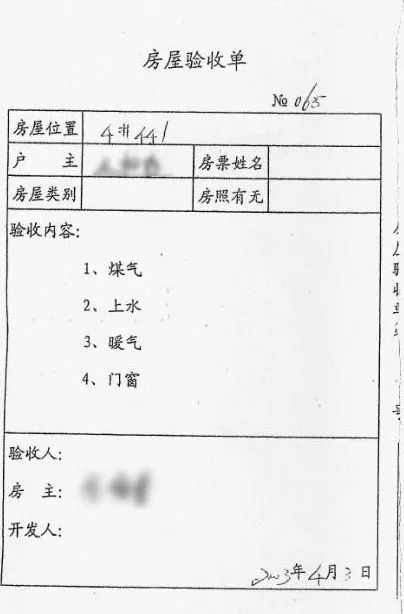 房屋验收单
№ 065
房屋位置 4#441
户 主 房票姓名
房屋类别 房照有无
验收内容:
1、煤气
2、上水
3、暖气
4、门窗
验收人:
房 主:
开发人:
2003年4月3日